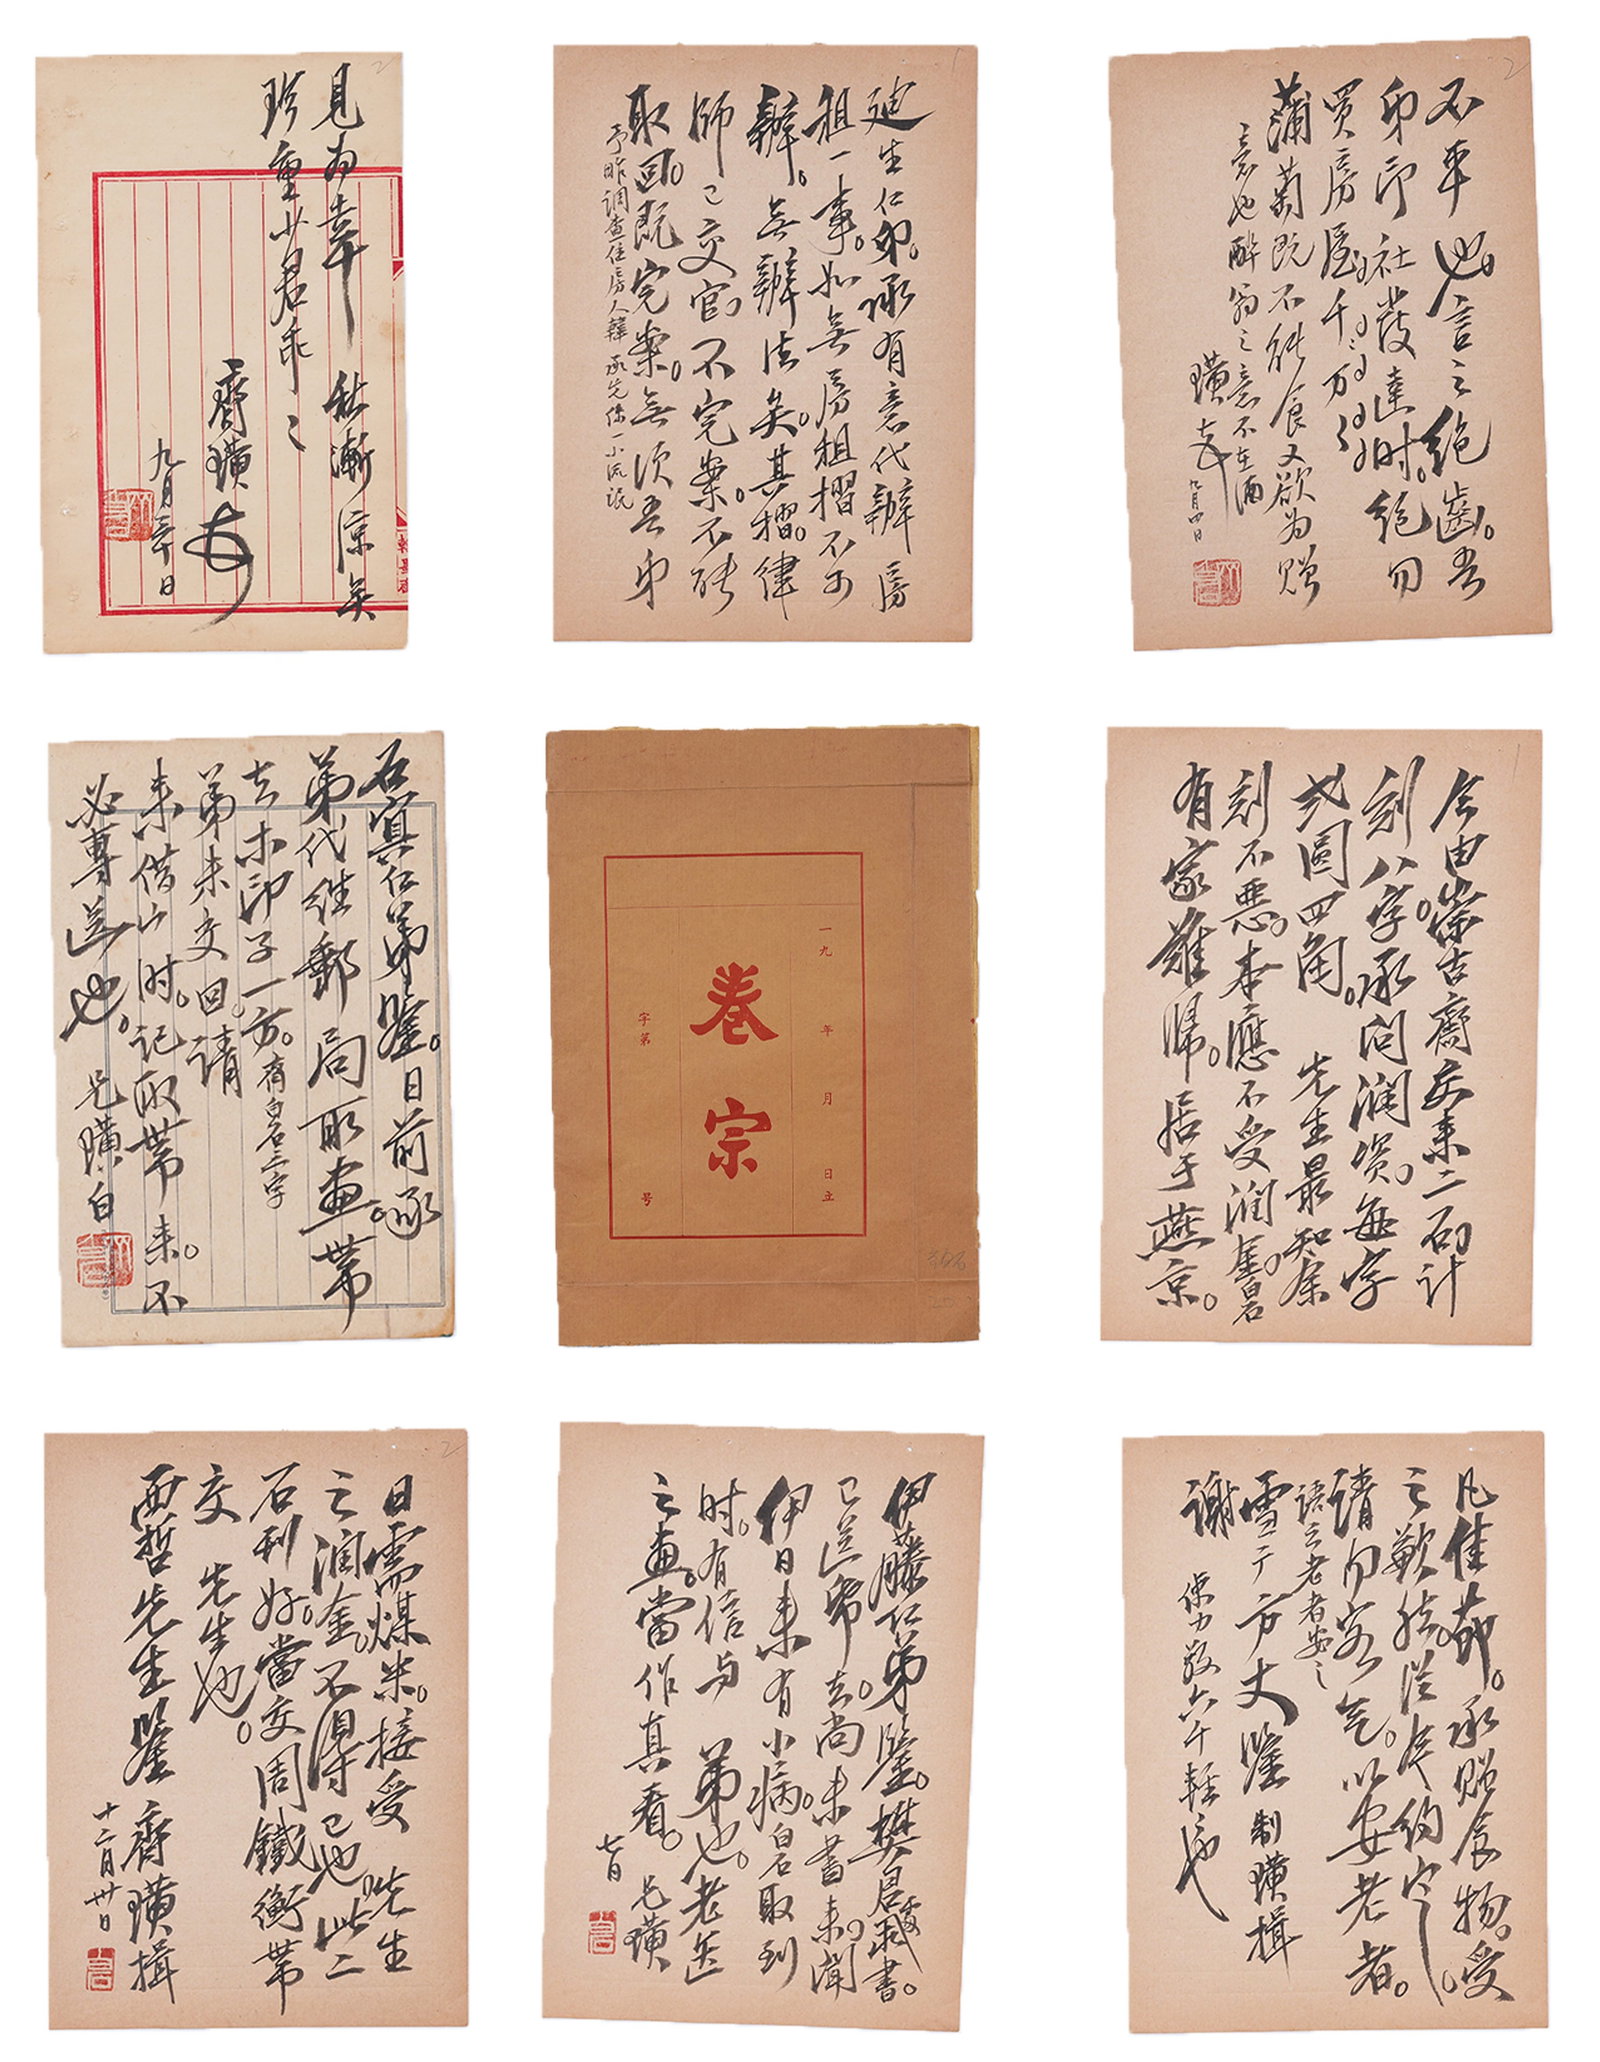 見為幸 秋漸涼矣
珍重小君乖之
齊璜
九月三十日
迪生仁弟。承有意代辦房
租一事。如無房租摺不可
辦。無辦法矣。其摺。律
師已交官。不完案。不能
取回。既完案。無須吾弟
予昨調查住房人韓承先係一小流氓
不平也。言之絕齒。吾
弟印社發達時。絕勿
買房屋。千千萬萬
蒲萄既不能食又欲為贈
意也醉翁之意不在酒
璜
九月四日
石寘仁弟鑒。日前承
弟代往郵局取畫。帶
去木印子一方。有白石二字
弟未交回。請
來借山時。記取帶來。不
必專送也。 兄璜白
卷宗
一九 年 月 日立
字第 号
今由榮古齋交來二石計
刻八字。承问潤資。每字
弍圓四角。 先生最知余
刻不惡。本應不受潤。奮白石
有家難歸。居于燕京。
日需煤米。接受 先生
之潤金。不得已也。此二
石刊好。當交周鐵衡帶
交 先生也。
西哲先生鑒 齊璜揖
十二月卅日
伊藤仁弟鑒。樊君處書。
已送帛去。尚未書來。聞
伊日來有小病。白石取到
時。有信与 弟也。老送
之畫。當作真看。 兄璜
七日
凡佳節。承贈食物。受
之歉然。從今約定。
請勿客气。以安老者。
語云老者安之
雪广方丈鑒 制璜揖
謝